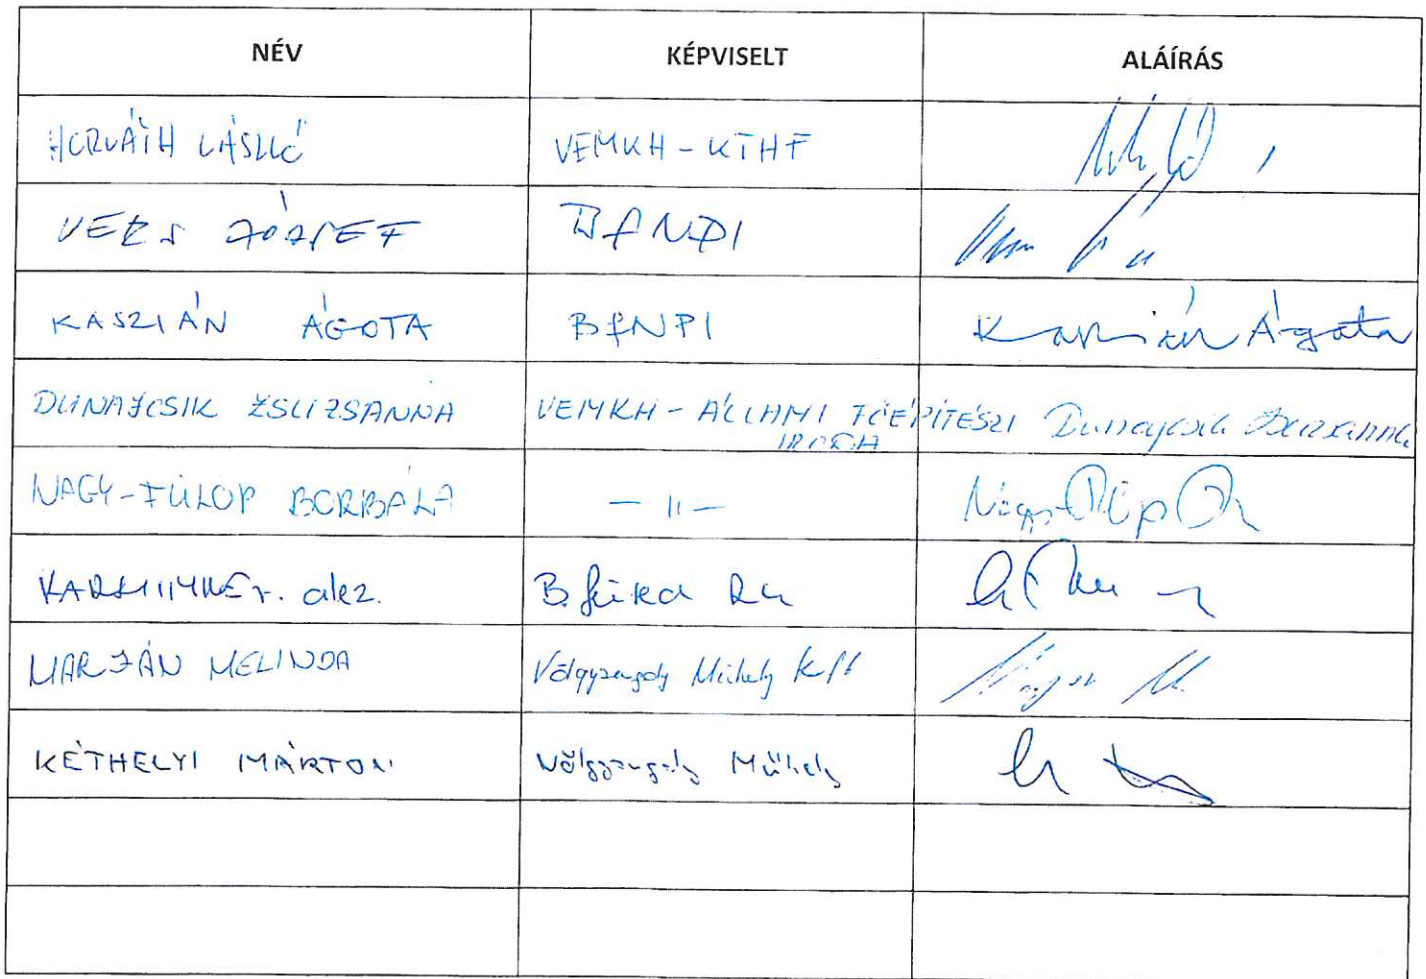 NÉV KÉPVISELT ALÁÍRÁS
HORVÁTH LÁSZLÓ VEMKH - KTHF
VERS JÓZSEF BfNPI
KASZIÁN ÁGOTA BfNPI Kaszián Ágota
DUNAJCSIK ZSUZSANNA VEMKH - ÁLLAMI FŐÉPÍTÉSZI Dunajcsik Zsuzsanna
IRODA
NAGY-FÜLÖP BORBÁLA — 11 —
alez. B.füred
MARJÁN MELINDA Völgyzugoly Műhely Kft
KÉTHELYI MÁRTON Völgyzugoly Műhely